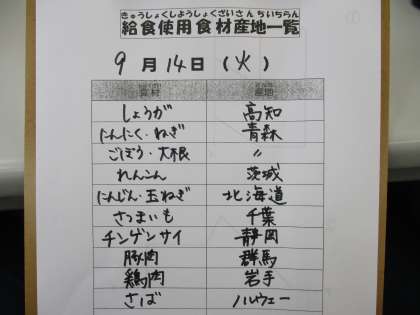 きゅうしょくしようしょくざいさんちいちらん
給食使用食材産地一覧
9月14日（火）
食材 産地
しょうが 高知
にんにく・ねぎ 青森
ごぼう・大根 〃
れんこん 茨城
にんじん・玉ねぎ 北海道
さつまいも 千葉
チンゲンサイ 静岡
豚肉 群馬
鶏肉 岩手
さば ノルウェー